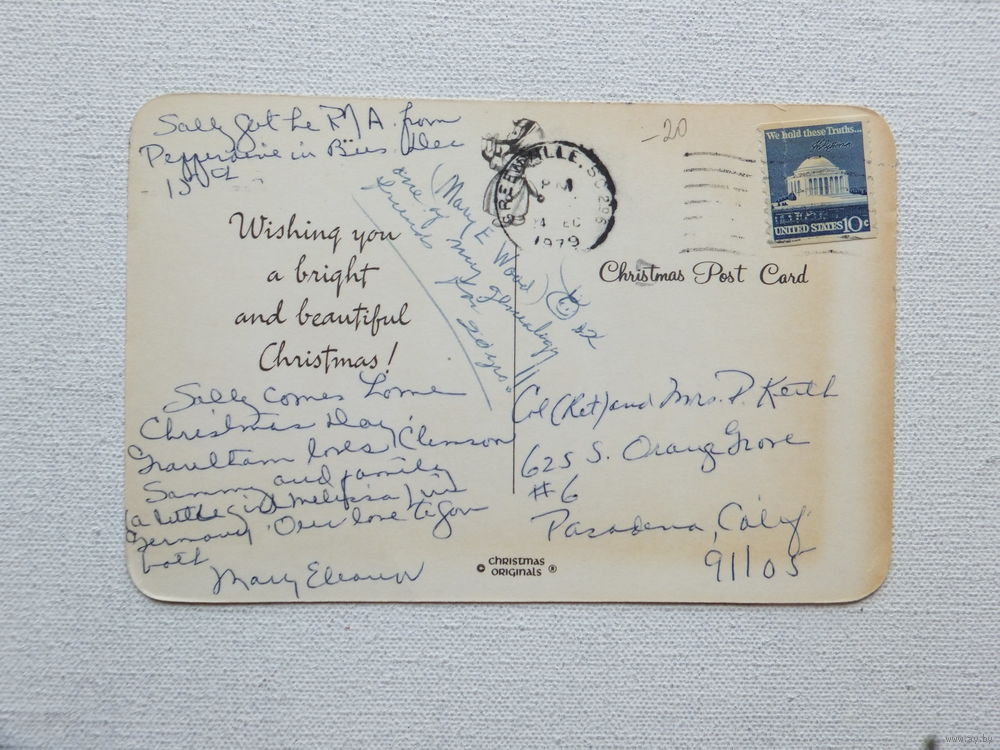 Sally got he M A. from
Pepperdine in Bus. Dec
15th
Wishing you
a bright
and beautiful
Christmas!
Sally comes home
Christmas Day,
loves Clemson
Sammy and family
(a little girl Melissa) in
Germany. Our love to you
both
Mary Eleanor
(Mary E Wood)
one of my genealogy
friends for 20 yrs.
82
-20
GREENVILLE, S.C. 296
PM
1979
We hold these Truths...
UNITED STATES 10c
Christmas Post Card
Col (Ret) and Mrs. P. Keith
625 S. Orange Grove
#6
Pasadena, Calif
91105
© CHRISTMAS
ORIGINALS ®
www.ay.by